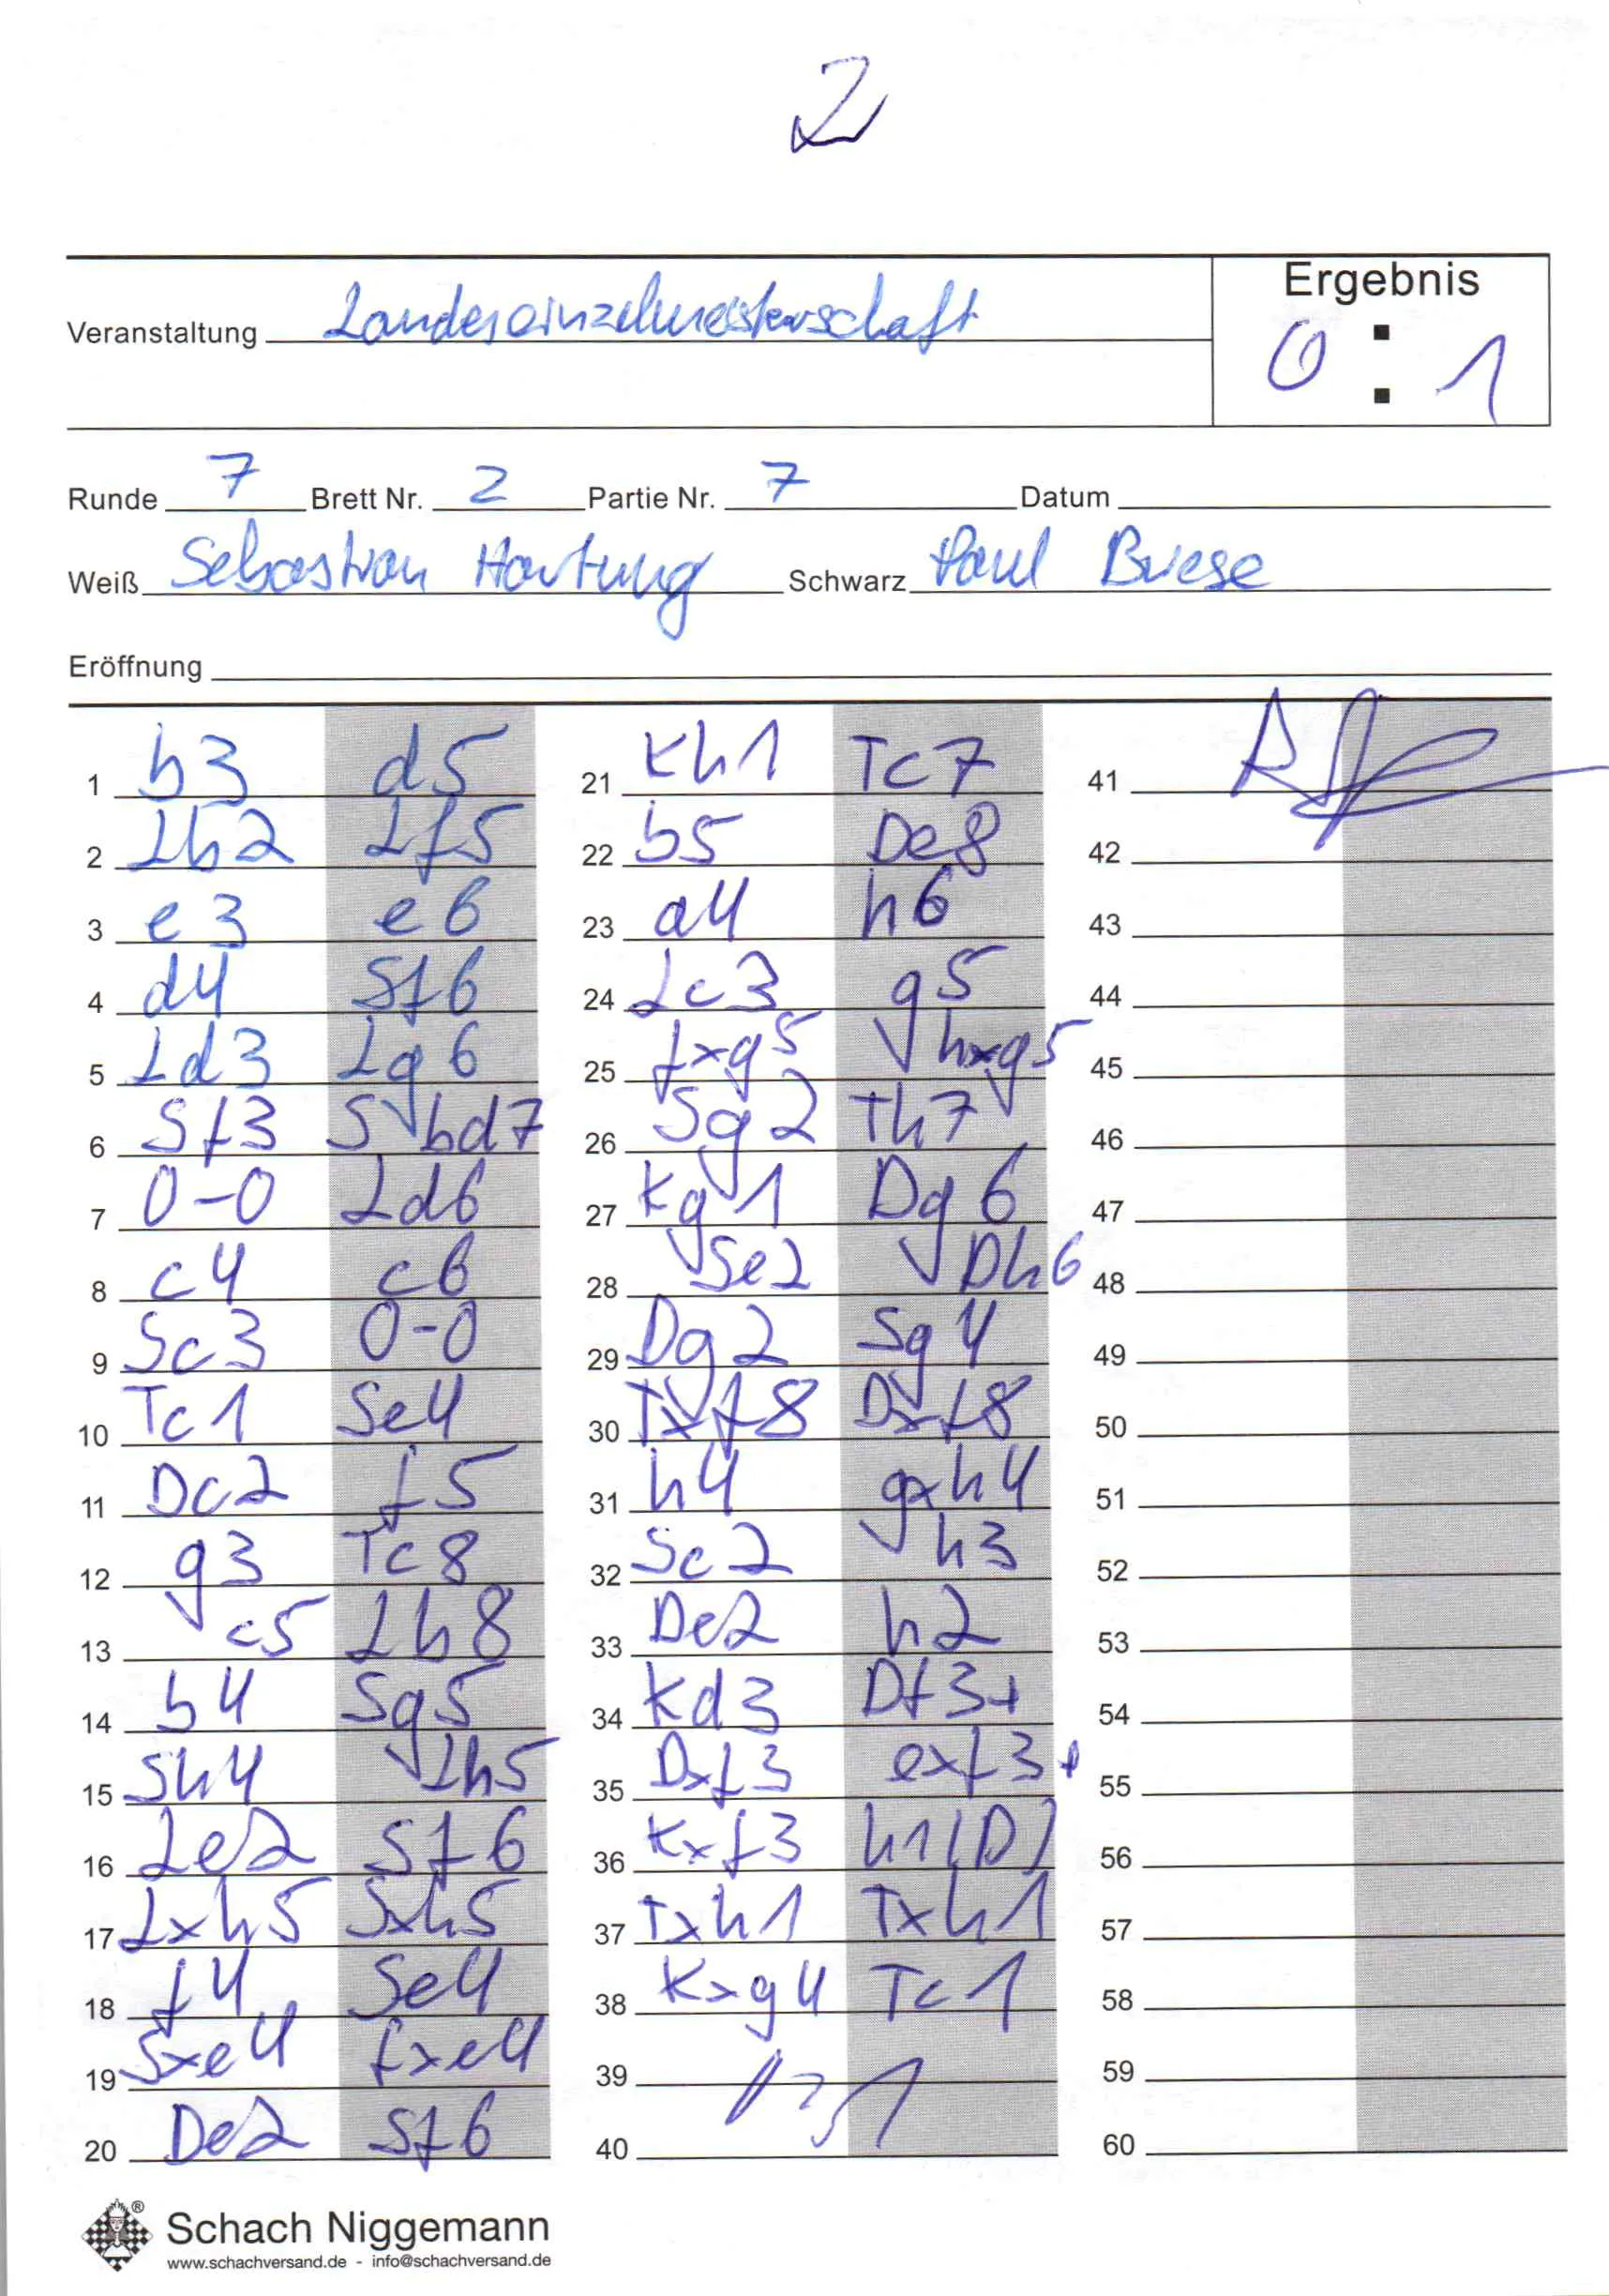 2
Ergebnis
Veranstaltung Landeseinzelmeisterschaft
0 : 1
Runde 7 Brett Nr. 2 Partie Nr. 7 Datum
Weiß Sebastian Hartung Schwarz Paul Briese
Eröffnung
1 b3 d5
2 Lb2 Lf5
3 e3 e6
4 d4 Sf6
5 Ld3 Lg6
6 Sf3 Sbd7
7 0-0 Ld6
8 c4 c6
9 Sc3 0-0
10 Tc1 Se4
11 Dc2 f5
12 g3 Tc8
13 c5 Lb8
14 b4 Sg5
15 Sh4 Lh5
16 Le2 Sf6
17 Lxh5 Sxh5
18 f4 Se4
19 Sxe4 fxe4
20 De2 Sf6
21 Kh1 Tc7
22 b5 De8
23 a4 h6
24 Lc3 g5
25 fxg5 hxg5
26 Sg2 Th7
27 Kg1 Dg6
28 Se2 Dh6
29 Dg2 Sg4
30 Txf8 Dxf8
31 h4 gxh4
32 Sc2 h3
33 De2 h2
34 Kd3 Df3+
35 Dxf3 exf3+
36 Kxf3 h1(D)
37 Txh1 Txh1
38 Kxg4 Tc1
39
40
41
42
43
44
45
46
47
48
49
50
51
52
53
54
55
56
57
58
59
60
Schach Niggemann ®
www.schachversand.de - info@schachversand.de